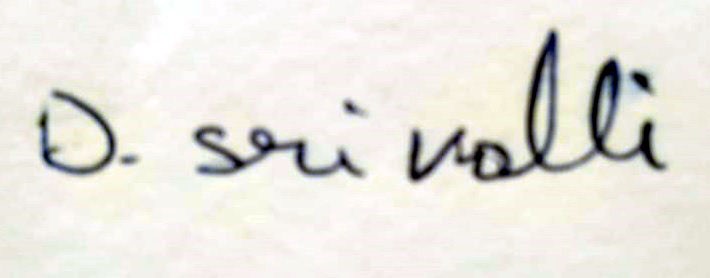 D. sri valli